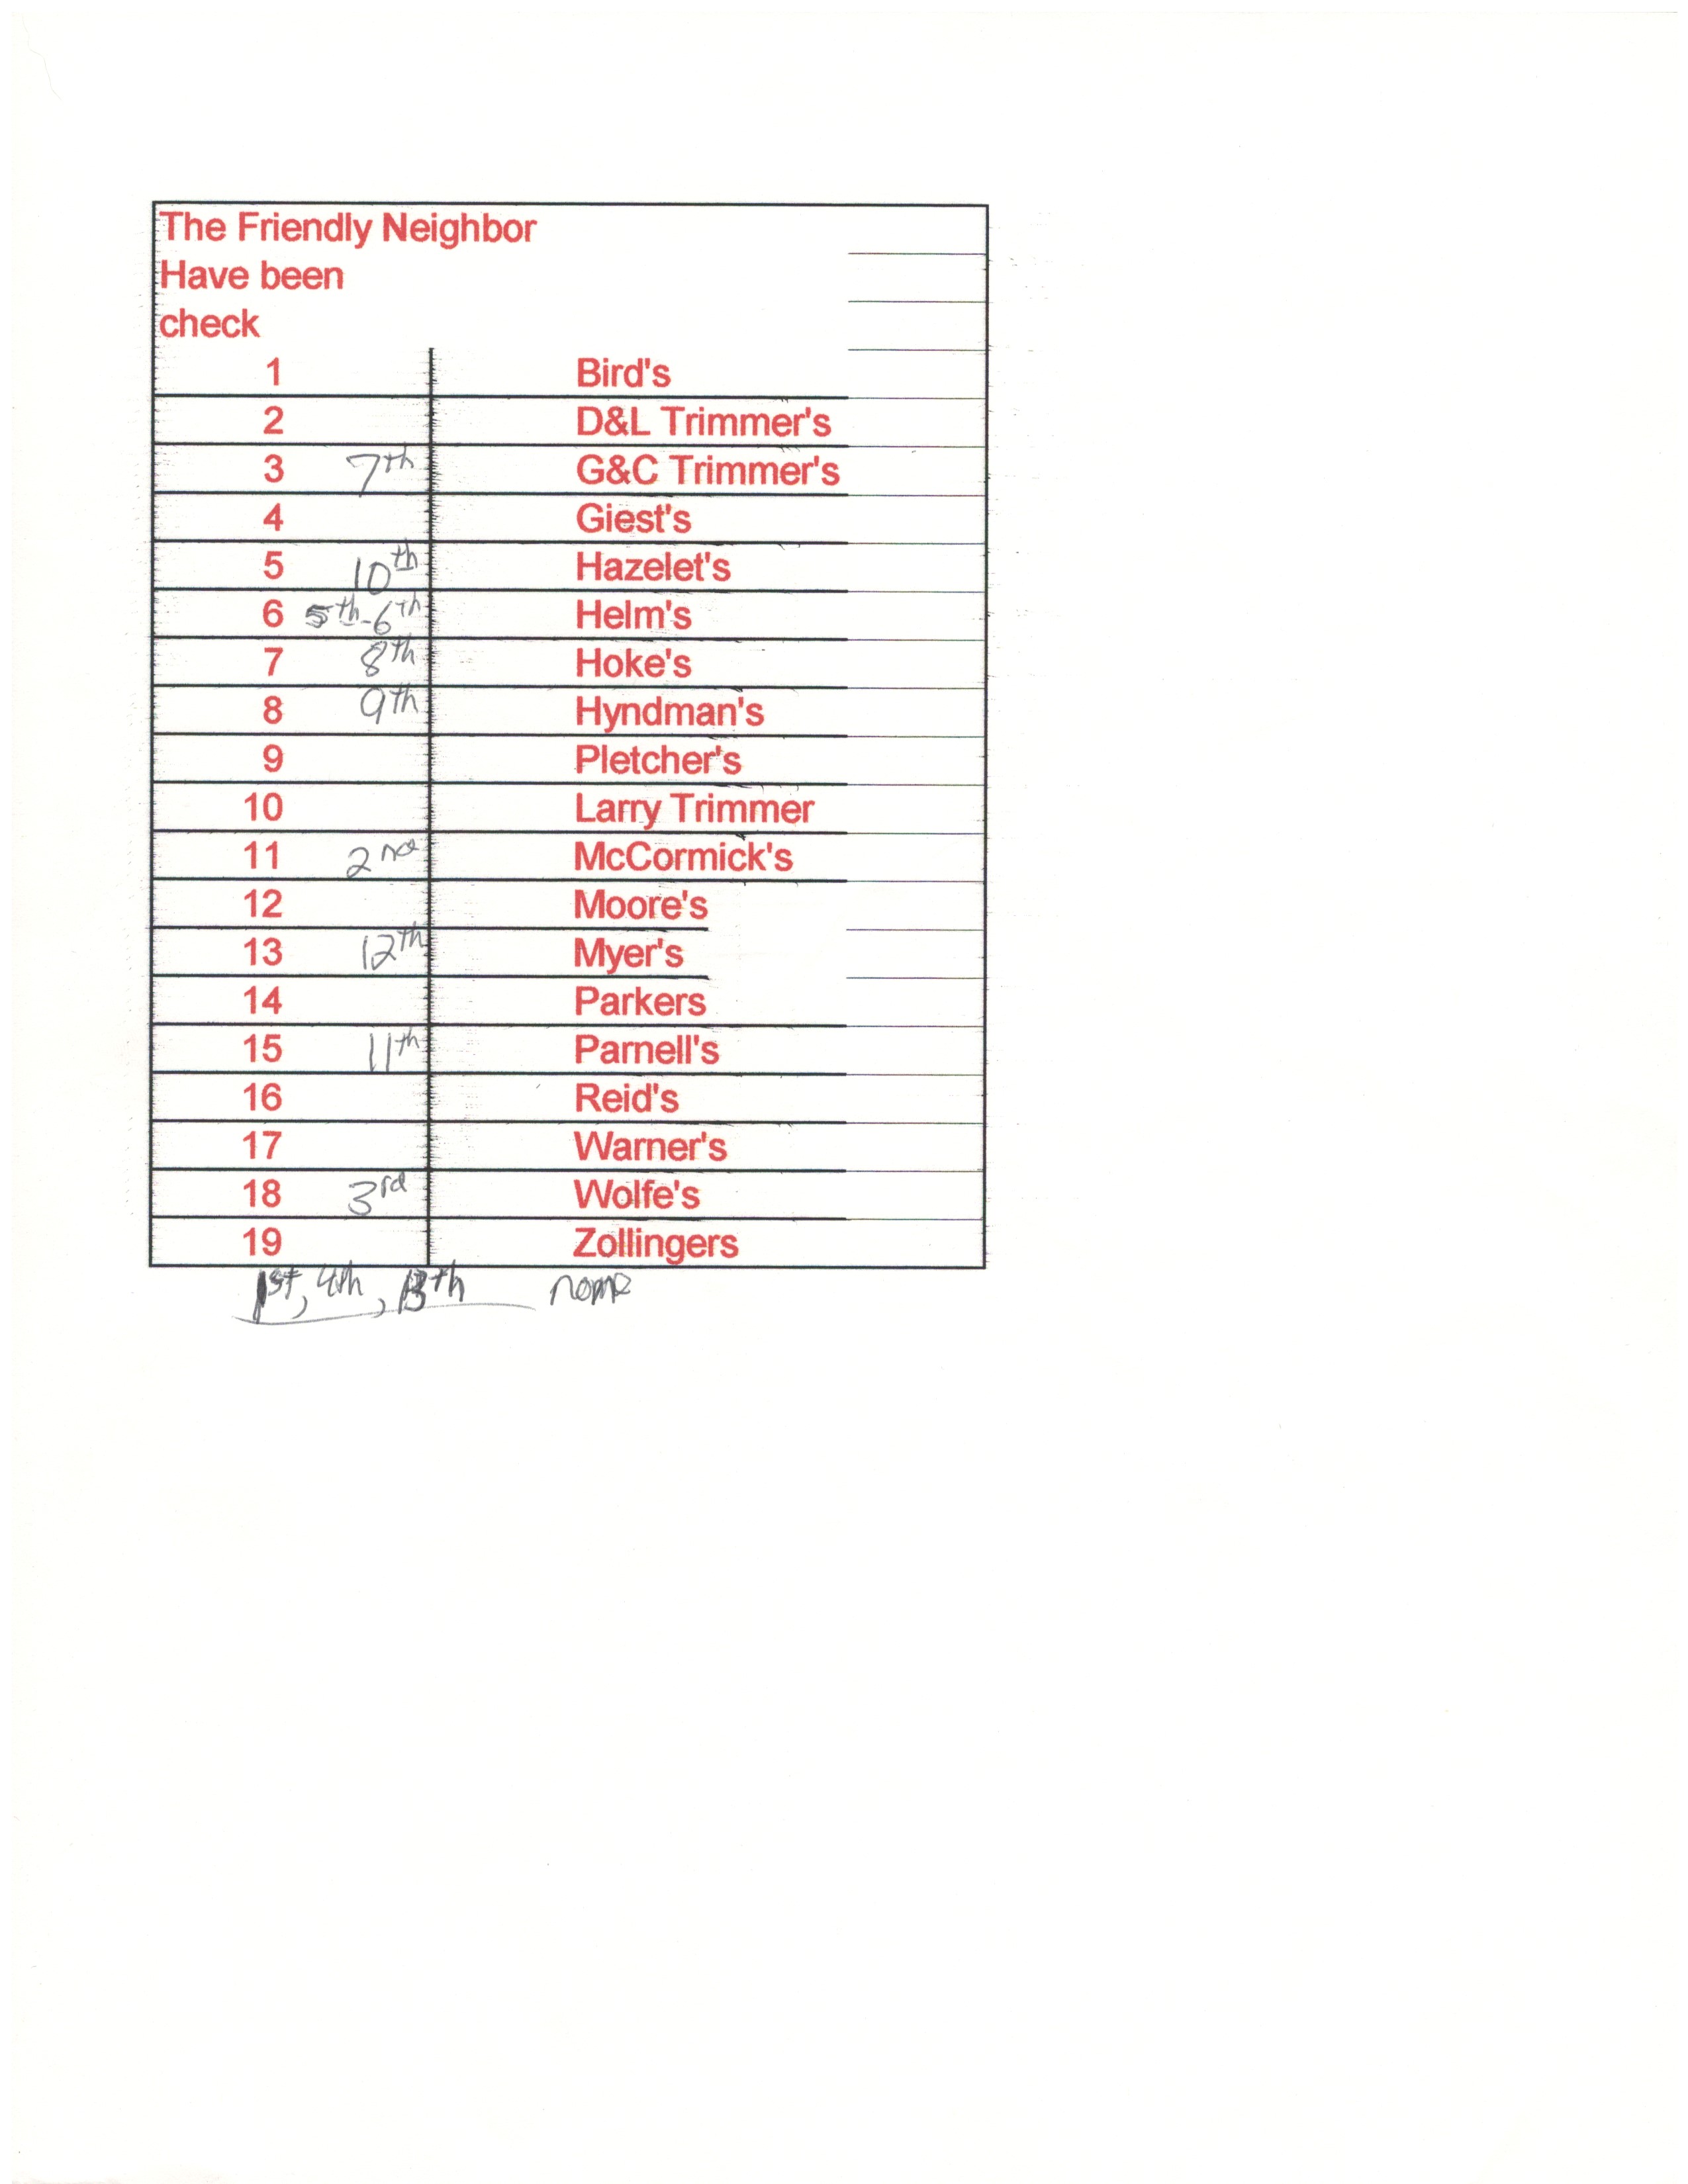 The Friendly Neighbor
Have been
check
1 Bird's
2 D&L Trimmer's
3 7th G&C Trimmer's
4 Giest's
5 10th Hazelet's
6 5th-6th Helm's
7 8th Hoke's
8 9th Hyndman's
9 Pletcher's
10 Larry Trimmer
11 2nd McCormick's
12 Moore's
13 12th Myer's
14 Parkers
15 11th Parnell's
16 Reid's
17 Warner's
18 3rd Wolfe's
19 Zollingers
1st, 4th, 13th